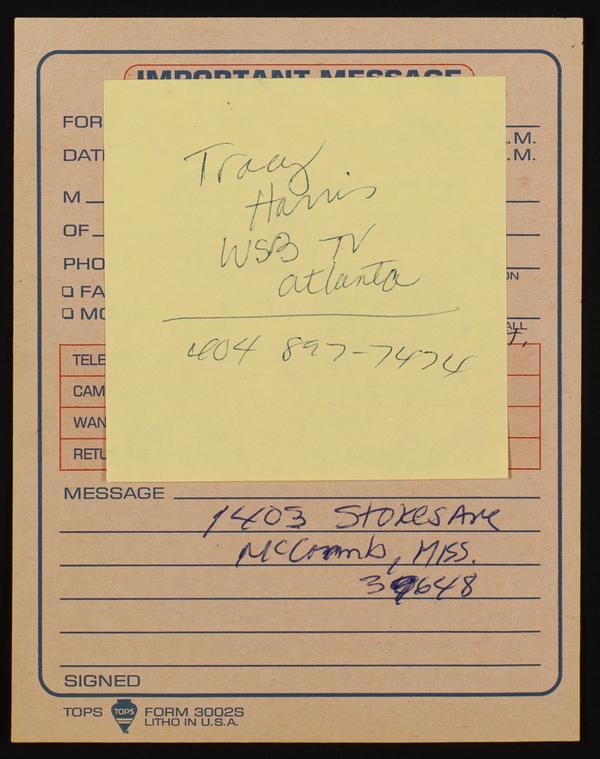 IMPORTANT MESSAGE
FOR
.M.
DATE
.M.
M
OF
PHO
ON
FA
MO
ALL
TELE
CAM
WAN
RETU
Tracy
Harris
WSB TV
atlanta
404 897-7474
MESSAGE
1403 Stokes Ave
McComb, Miss.
39648
SIGNED
TOPS TOPS FORM 3002S
LITHO IN U.S.A.